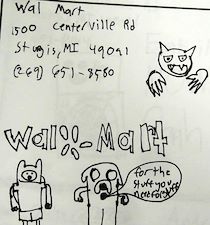 Wal Mart
1500 Centerville Rd
Sturgis, MI 49091
(269) 651-8580
Wal Mart
for the
stuff you